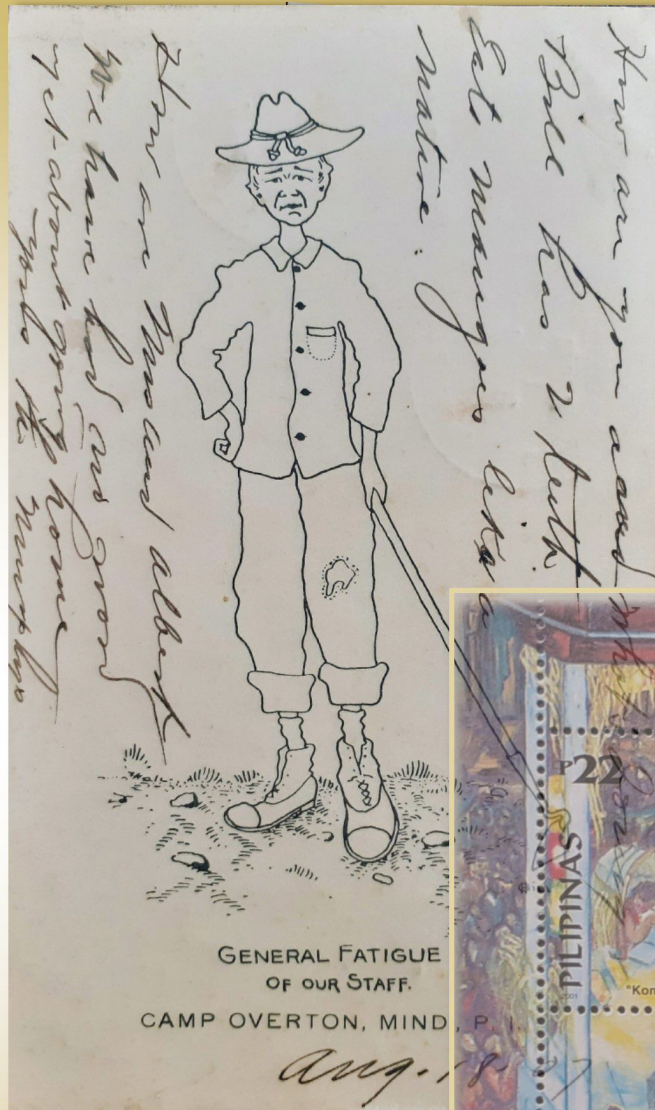 How are you
Bill has 2 teeth
Eats mangoes like a
native.
How are Mrs and Albert
We have had no word
yet about going home
yours the Murphys
GENERAL FATIGUE
OF OUR STAFF.
CAMP OVERTON, MIND, P. I.
Aug. 18
P22
PILIPINAS
2001